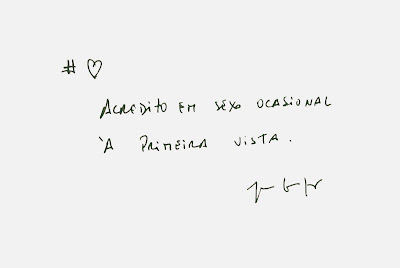 # ♡
ACREDITO EM SEXO OCASIONAL
À PRIMEIRA VISTA.